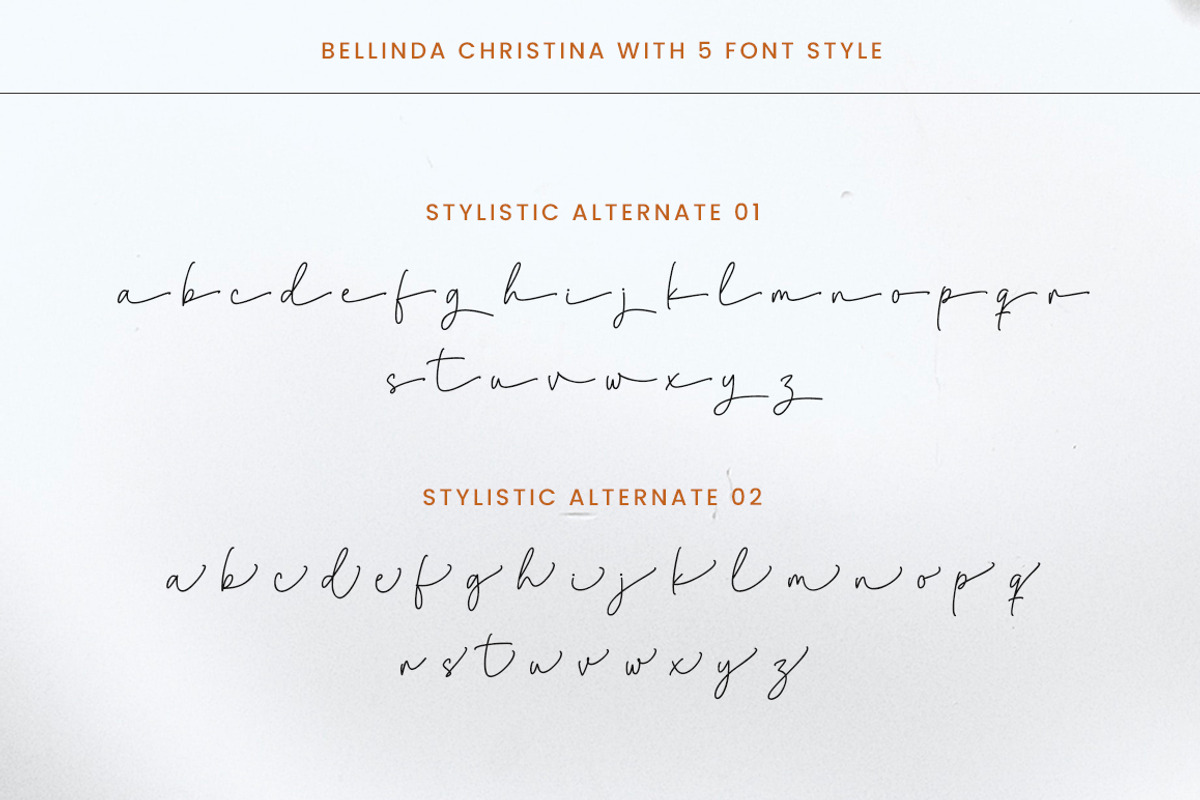 BELLINDA CHRISTINA WITH 5 FONT STYLE
STYLISTIC ALTERNATE 01
a b c d e f g h i j k l m n o p q r
s t u v w x y z
STYLISTIC ALTERNATE 02
a b c d e f g h i j k l m n o p q
r s t u v w x y z